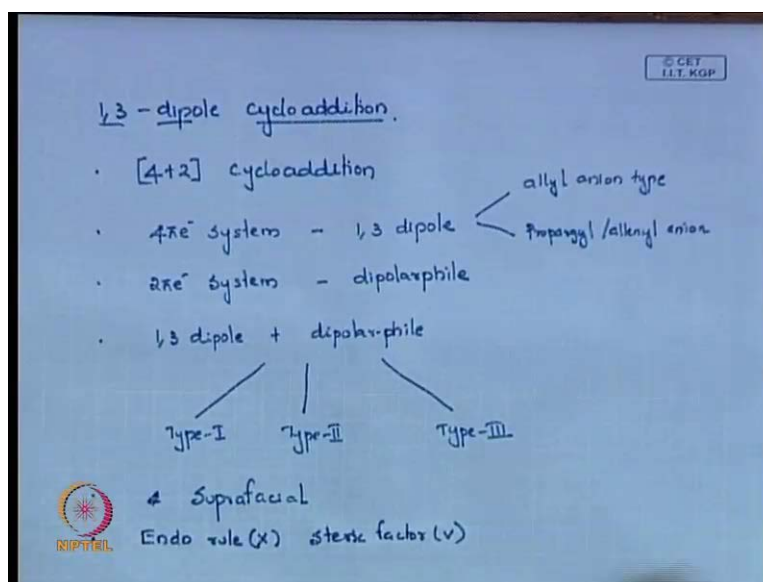 © CET
I.I.T. KGP
1,3 - dipole cycloaddition.
· [4+2] cycloaddition
allyl anion type
· 4πe⁻ system - 1,3 dipole
Propargyl/allenyl anion
· 2πe⁻ system - dipolarphile
· 1,3 dipole + dipolar-phile
Type-I Type-II Type-III
Suprafacial
Endo rule (x) steric factor (v)
NPTEL